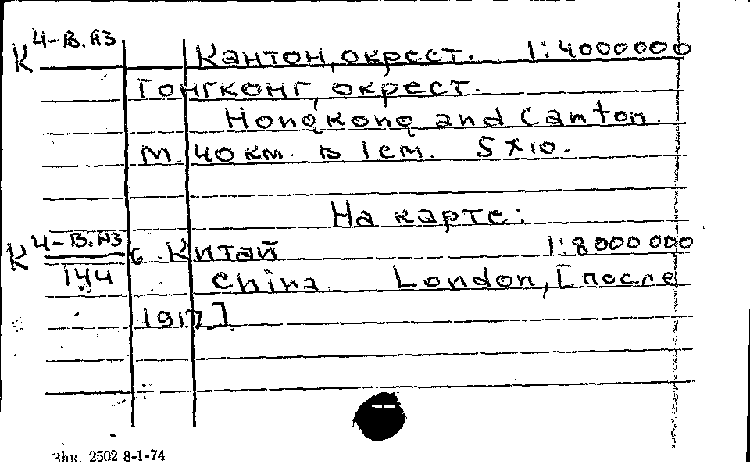 К 4-В.АЗ Кантон, окрест. 1:4000000
Гонгконг, окрест.
Hongkong and Canton
М. 40 км. в 1 см. 5x10.
На карте:
К 4-В.АЗ/144 6. Китай 1:8000000
China London, [после
1917]
Зак. 2502 8-1-74